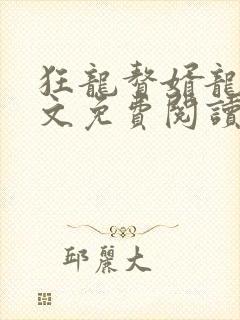 狂龍贅婿龍
文免費閱讀
邱麗大